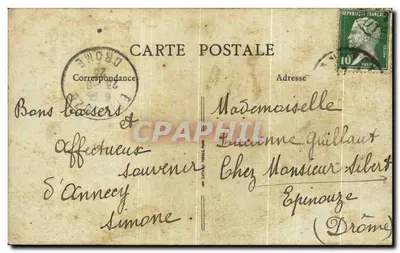 CARTE POSTALE
Correspondance
Adresse
RÉPUBLIQUE FRANÇAISE
10
DROME
Bons baisers
et
affectueux
souvenir
d'Annecy
Simone.
Mademoiselle
Lucienne Guillaut
Chez Monsieur Sibert
Epinouze
(Drôme)
CPAPHIL.COM